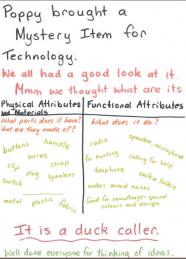 Poppy brought a
Mystery Item for
Technology.
We all had a good look at it.
Mmm we thought what are its
Physical Attributes
and Materials
What parts does it have?
What are they made of?
buttons handle
wires
clip strap
speaker
Switch
metal plastic
Functional Attributes
What does it do?
radio speaker microphone
for hunting calling for help
telephone walkie talkie
makes animal noises
Good for something special
colours and design.
It is a duck caller.
Well done everyone for thinking of ideas.